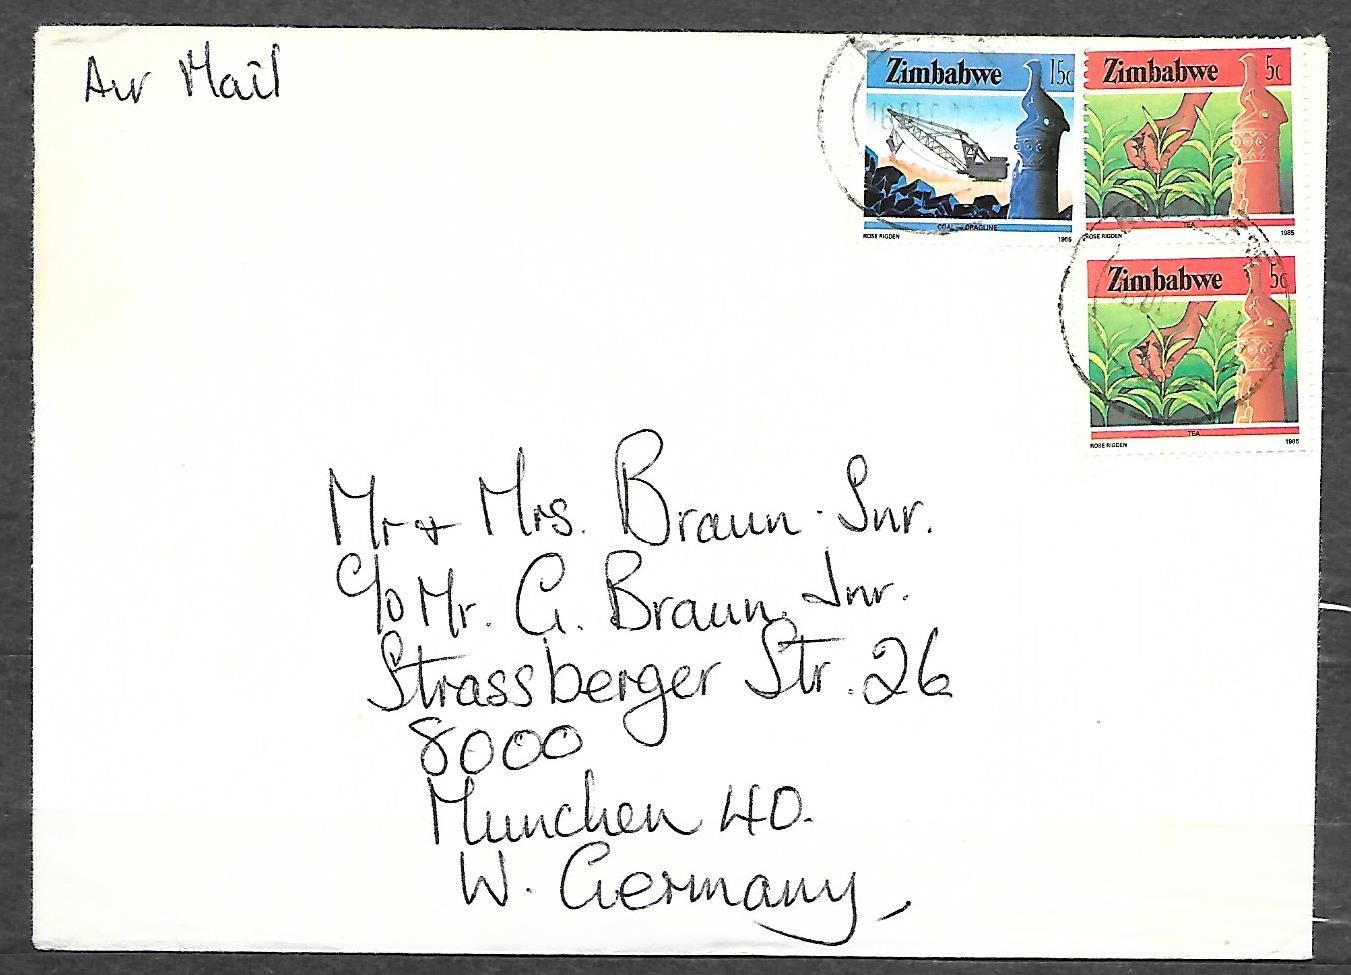 Air Mail
Zimbabwe 15c
COAL - DRAGLINE
ROSE RIGDEN 1985
Zimbabwe 5c
TEA
ROSE RIGDEN 1985
Zimbabwe 5c
TEA
ROSE RIGDEN 1985
Mr + Mrs. Braun. Snr.
c/o Mr. G. Braun. Jnr.
Strassberger Str. 26
8000
Munchen 40.
W. Germany,